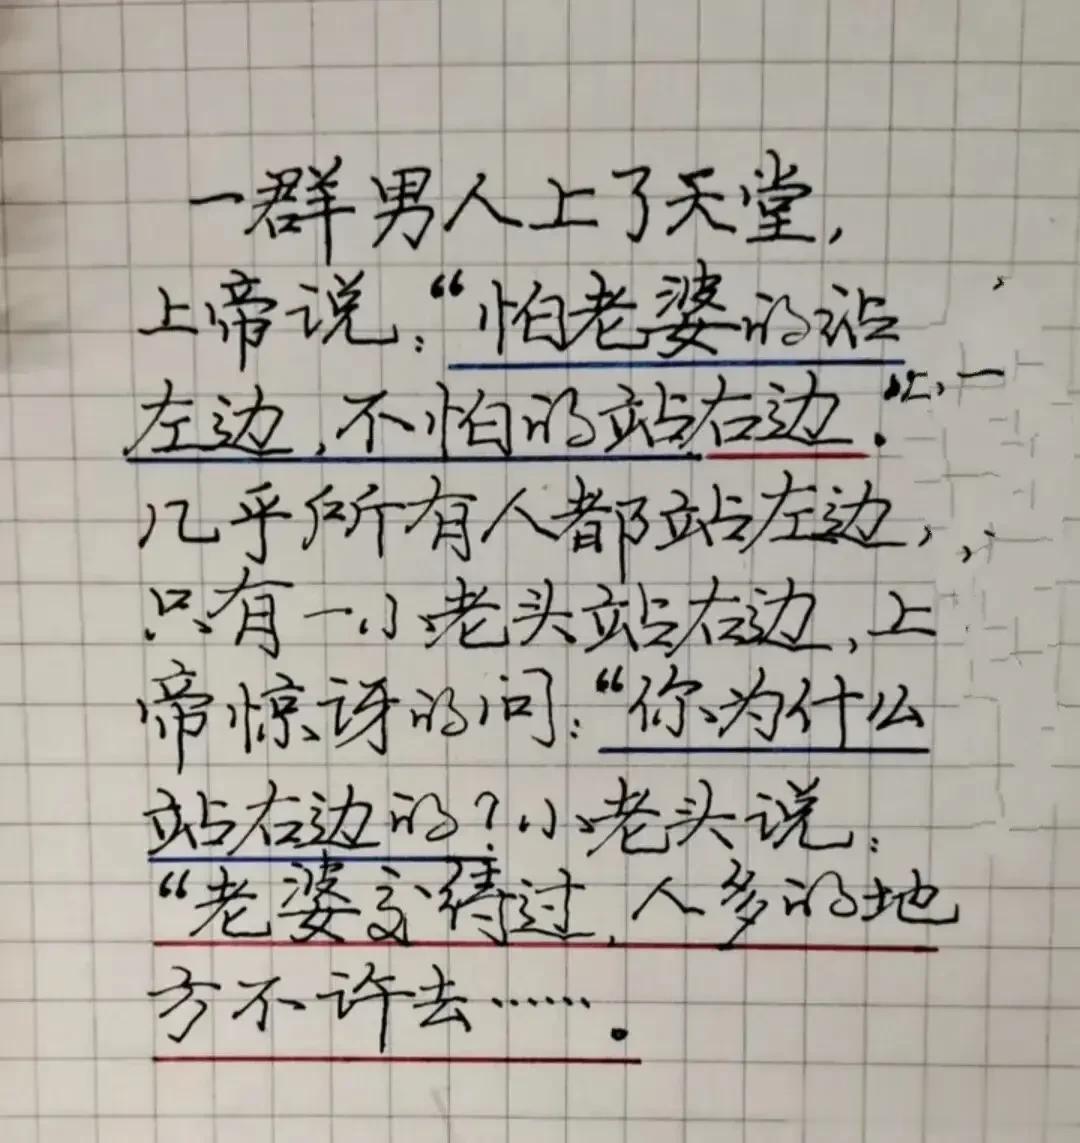 一群男人上了天堂,
上帝说:“怕老婆的站
左边,不怕的站右边.“
几乎所有人都站左边,
只有一小老头站右边,上
帝惊讶的问:“你为什么
站右边的?小老头说:
“老婆交待过,人多的地
方不许去…….